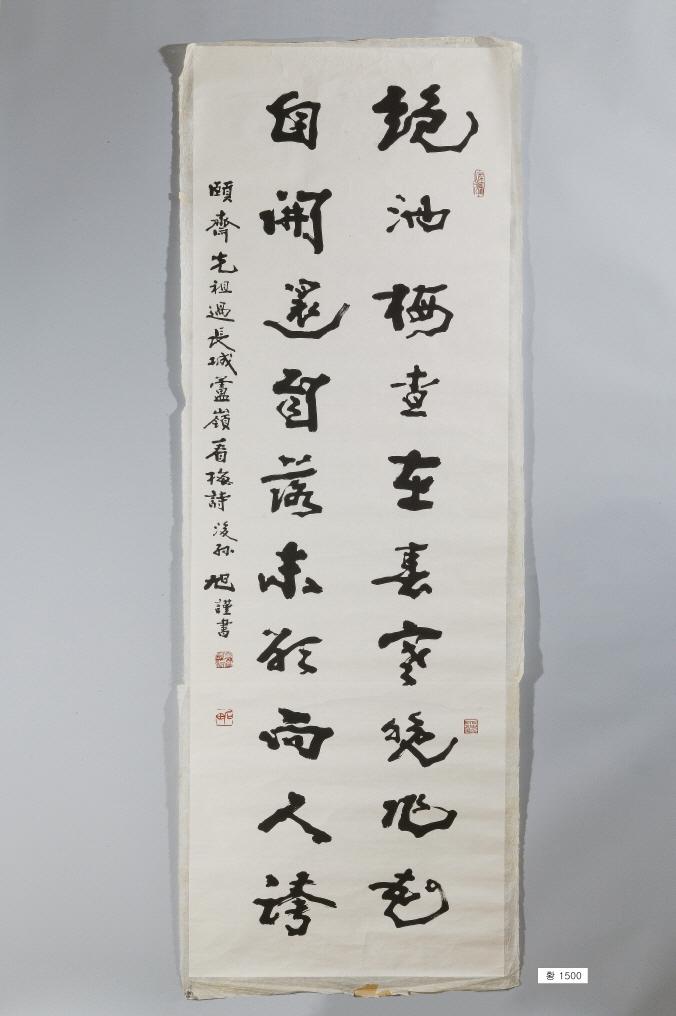 池梅查在春寒晚作花
自開還自落未欲向人誇
頤齋先祖過長城蘆嶺看梅詩 後孫 旭 謹書
황 1500